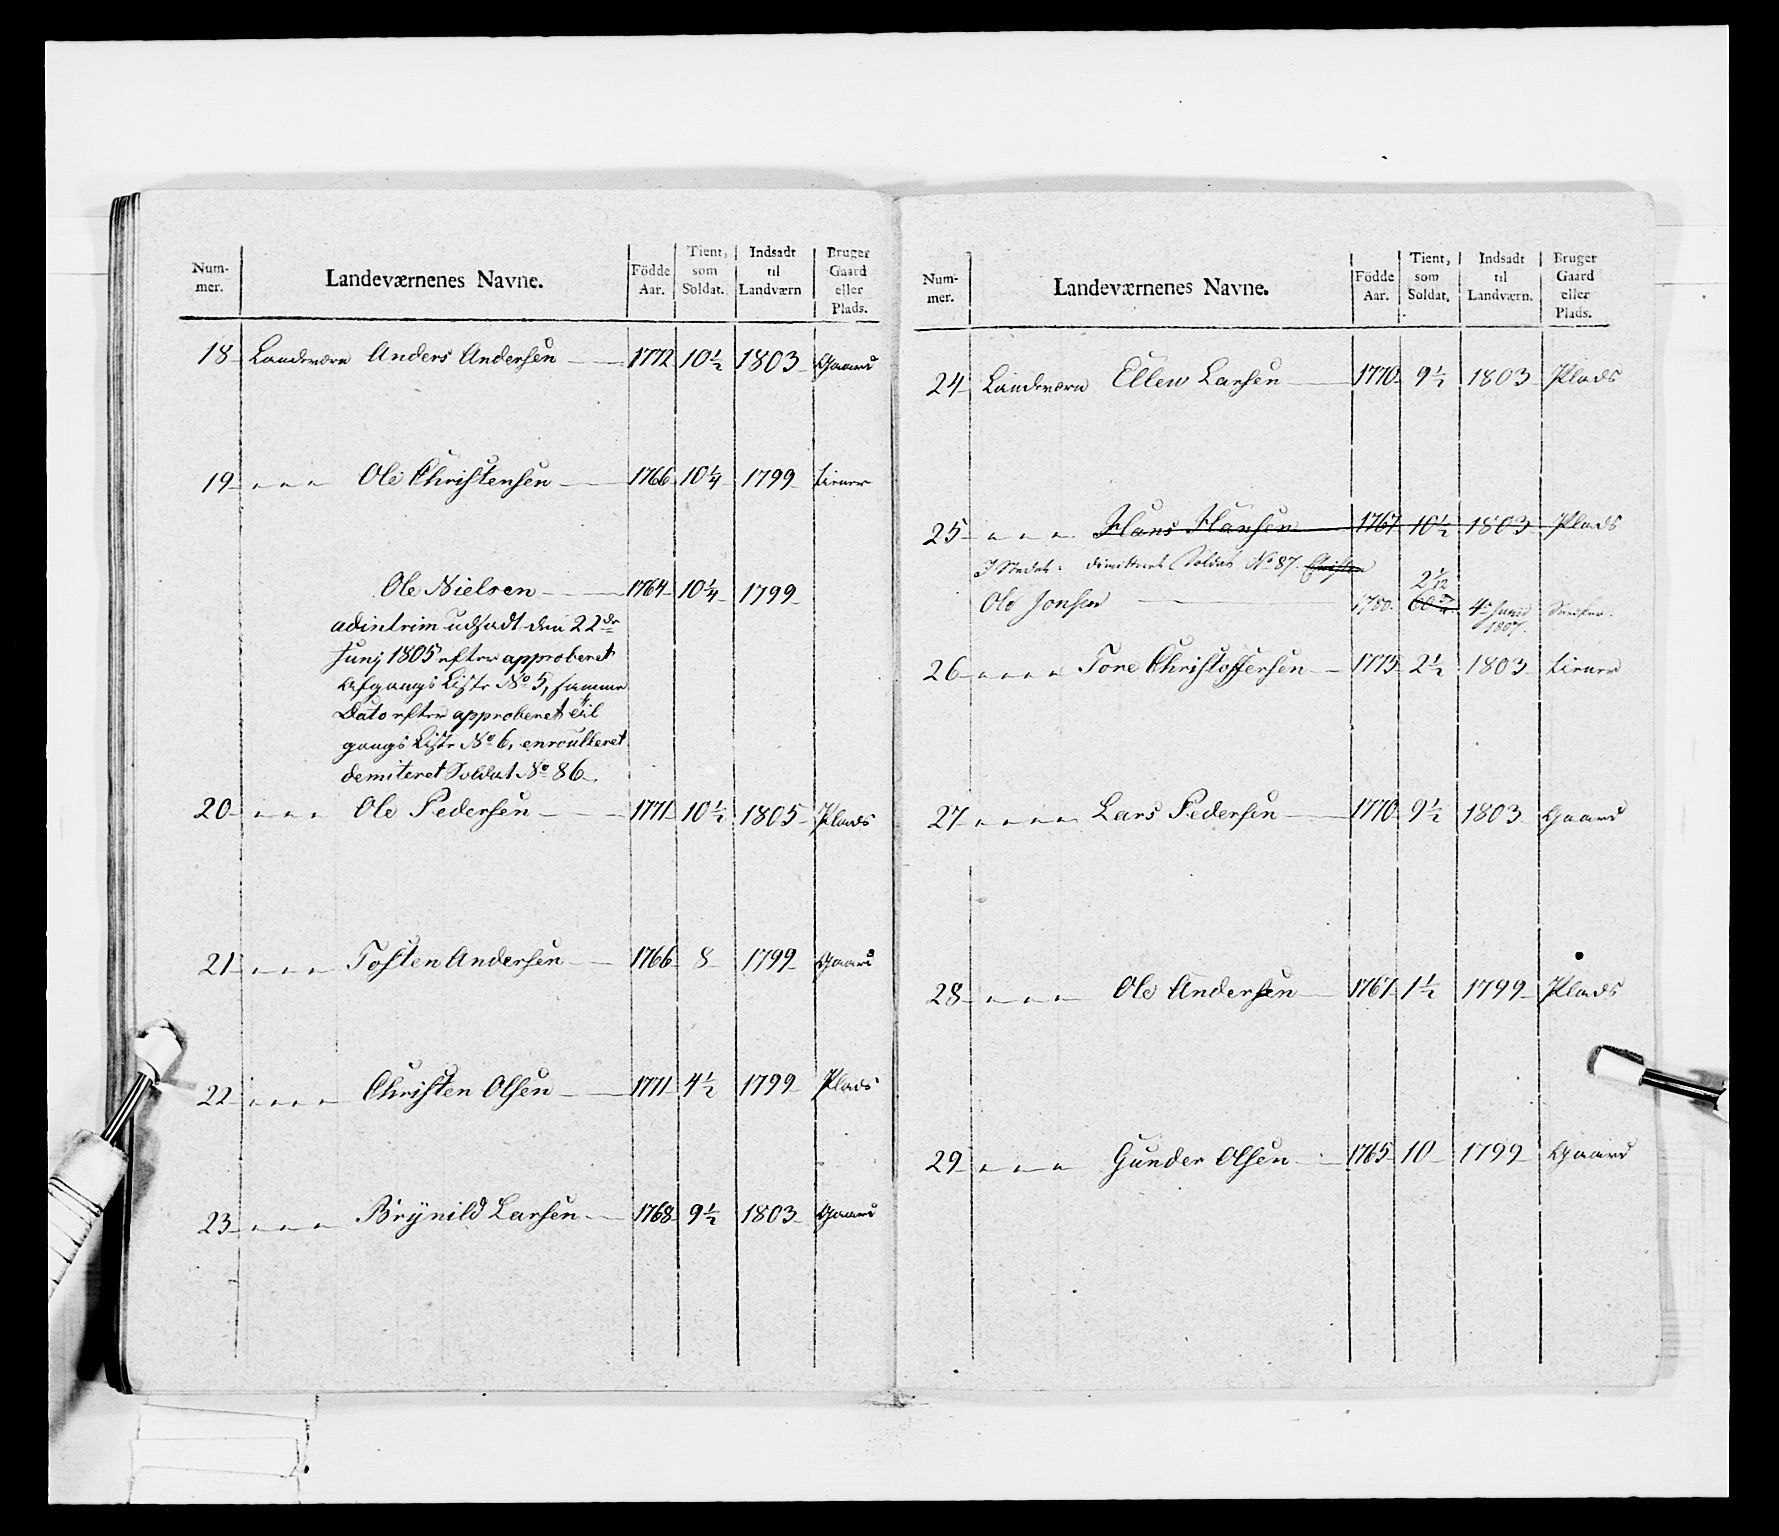 Num-
mer.
Landeværnenes Navne.
Födde
Aar.
Tient,
som
Soldat.
Indsadt
til
Landværn
Bruger
Gaard
eller
Plads.
18 Landeværn Anders Andersen 1772 10 1/2 1803 Gaard
19 〃 〃 〃 Ole Christensen 1766 10 1/4 1799 tiener
Ole Nielsen 1764 10 1/4 1799
adintrim udsadt den 22de
Junj 1805 efter approberet
Afgangs Liste No 5, samme
Dato efter approberet til
gangs Liste No 6, enroulleret
demiteret Soldat No 86
20 〃 〃 〃 Ole Pedersen 1771 10 1/2 1805 Plads
21 〃 〃 〃 Tosten Andersen 1766 8 1799 Gaard
22 〃 〃 〃 〃 Christen Olsen 1771 4 1/2 1799 Plads
23 〃 〃 〃 Brÿnild Larsen 1768 9 1/2 1803 Gaard
Num-
mer.
Landeværnenes Navne.
Födde
Aar.
Tient,
som
Soldat.
Indsadt
til
Landværn.
Bruger
Gaard
eller
Plads.
24 Landeværn Ellew Larsen 1770 9 1/2 1803 Plads
25 〃 〃 〃 Hans Hansen 1767 10 1/2 1803 Plads
I Stedet: dimitteret Soldat No 87. Christen
Ole Jonsen 1780. 2 1/12 4de Junii
1807.
26 〃 〃 〃 〃 Tore Christoffersen 1775 2 1/2 1803 tiener
27 〃 〃 〃 〃 Lars Pedersen 1770 9 1/2 1803 Gaard
28 〃 〃 〃 Ole Andersen 1767 1 1/2 1799 Plads
29 〃 〃 〃 Gunder Olsen 1765 10 1799 Gaard